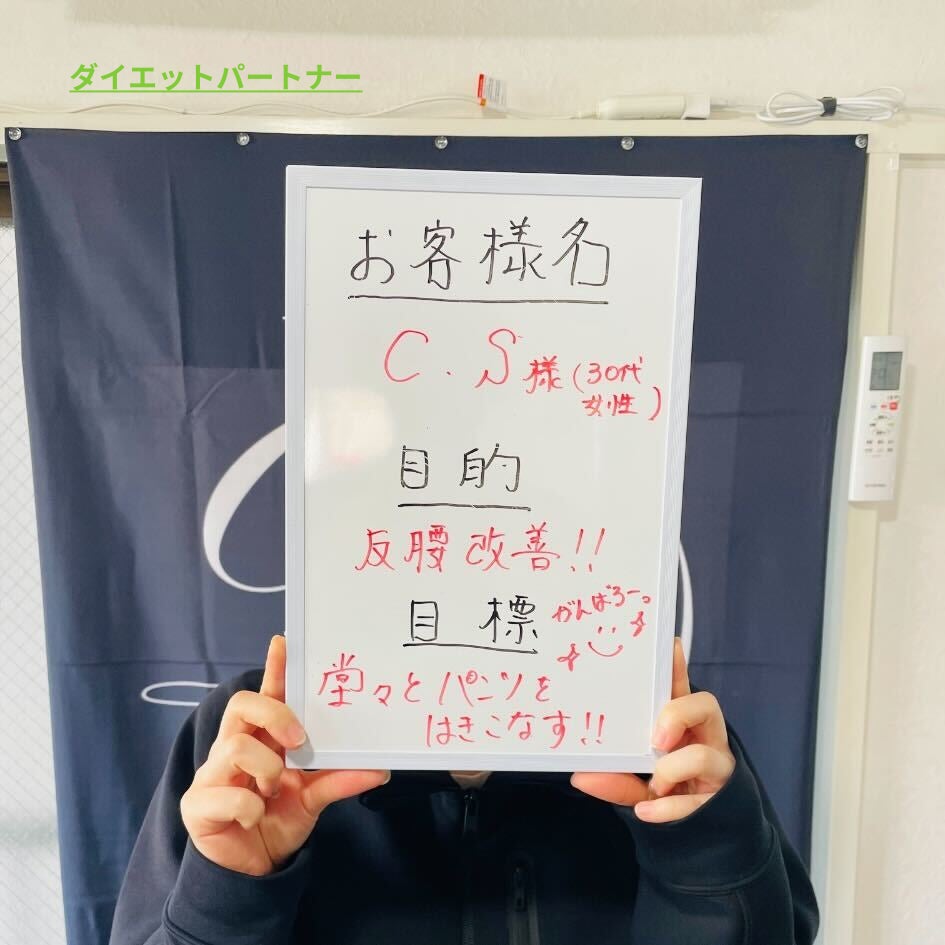 ダイエットパートナー
お客様名
C.S様(30代
女性)
目的
反腰改善!!
目標
がんばろーっ
堂々とパンツを
はきこなす!!